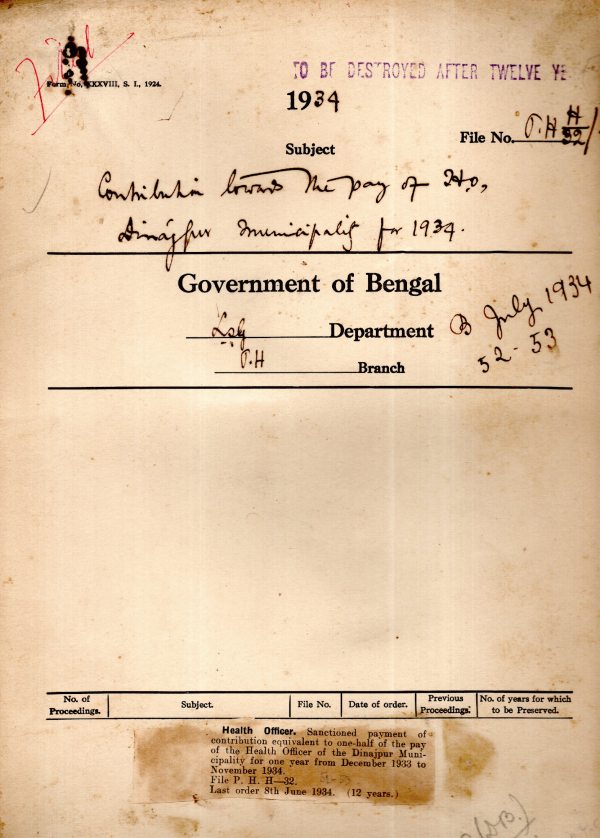 Form No. XXXVIII, S. I., 1924.
TO BE DESTROYED AFTER TWELVE YE
1934
File No. P. H H/32/
Subject
Contribution towards the pay of H.O.,
Dinajpur Municipality for 1934.
Government of Bengal
LSG Department
B July 1934
52-53
P.H Branch
No. of Proceedings.
Subject.
File No.
Date of order.
Previous Proceedings.
No. of years for which to be Preserved.
Health Officer. Sanctioned payment of
contribution equivalent to one-half of the pay
of the Health Officer of the Dinajpur Muni-
cipality for one year from December 1933 to
November 1934.
File P. H. H—32.
Last order 8th June 1934. (12 years.)